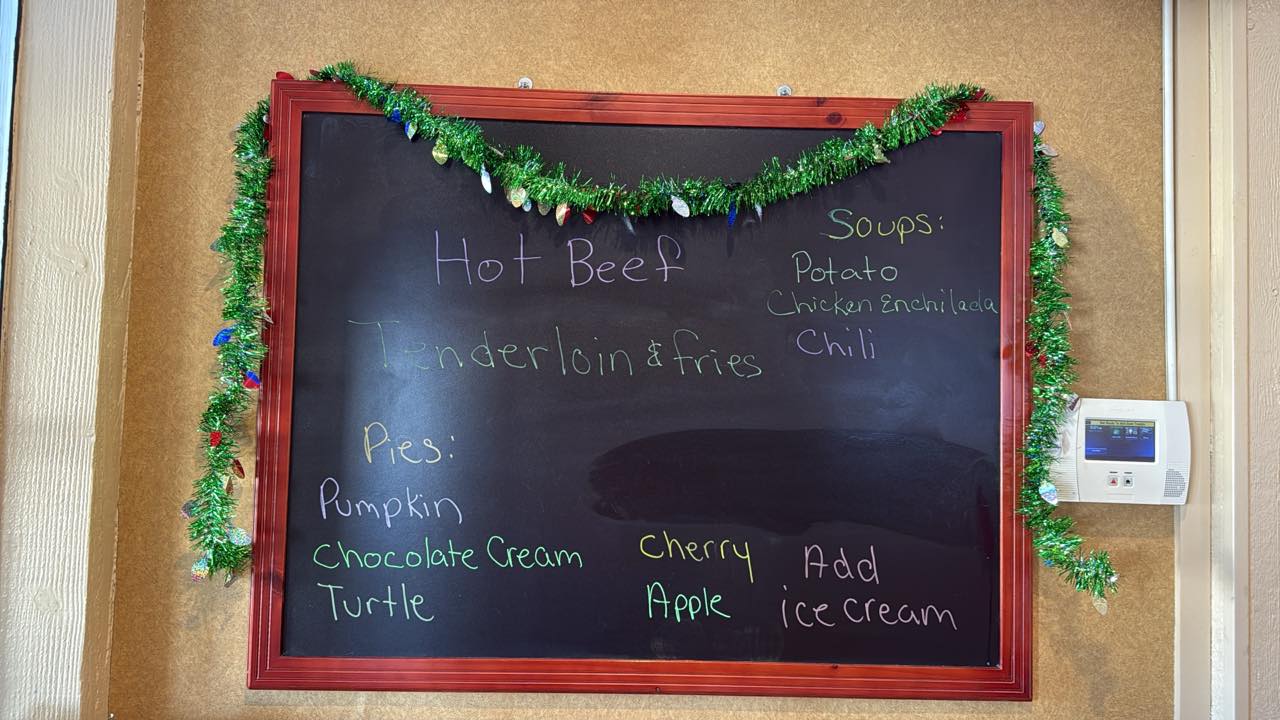 Hot Beef
Tenderloin & fries
Soups:
Potato
Chicken Enchilada
Chili
Pies:
Pumpkin
Chocolate Cream
Turtle
Cherry
Apple
Add
ice cream